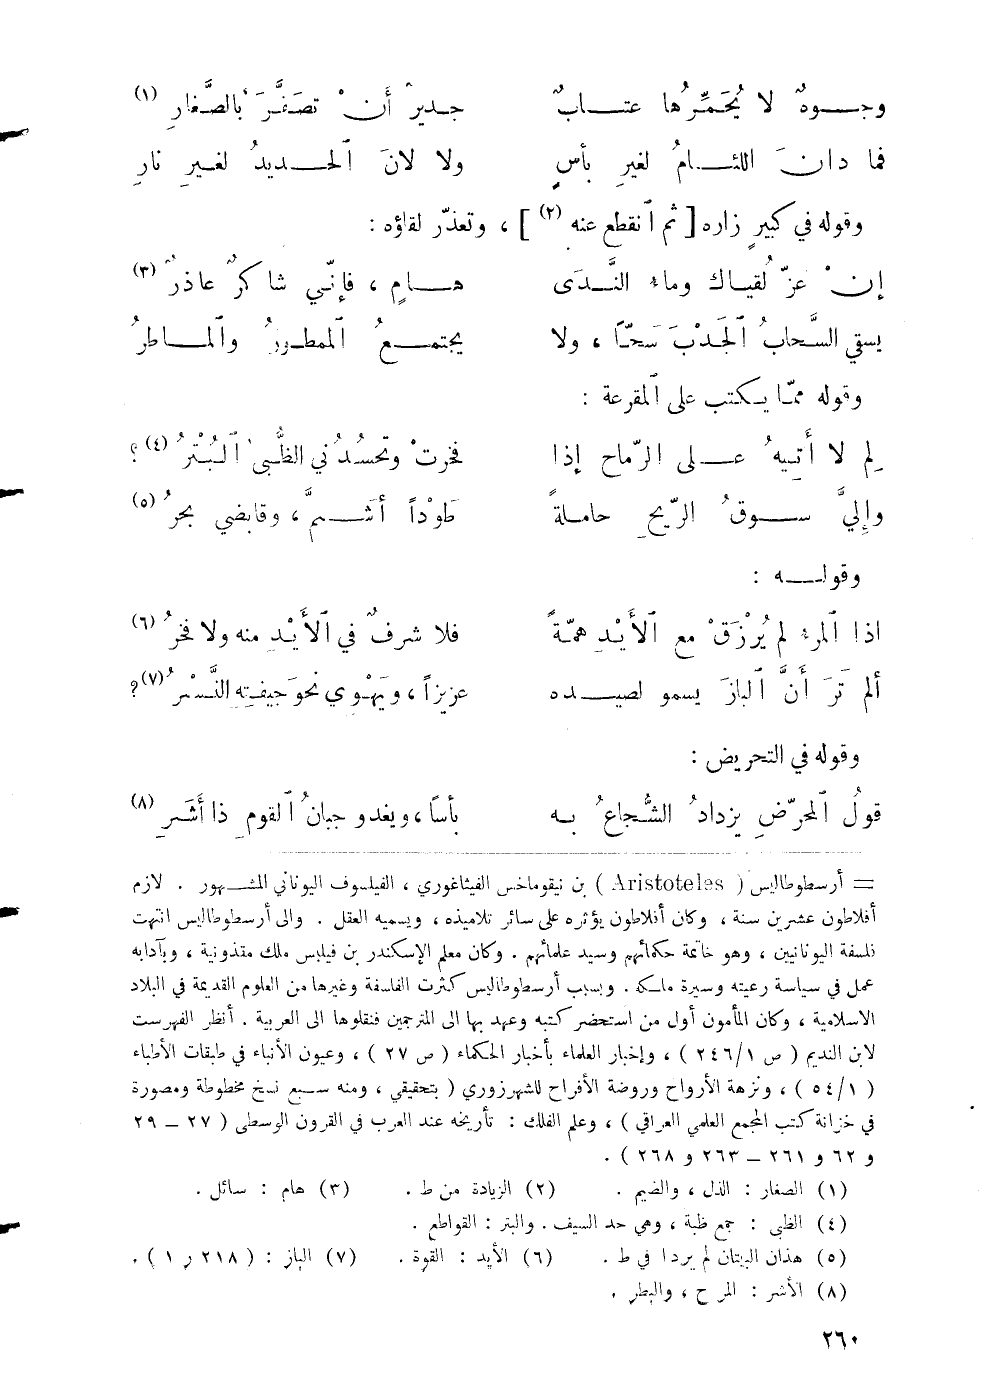 وجــوهٌ لا يُحَمِّرُها عتــابٌ جـديرٌ أَنْ تصَفَّرَ بالصَّغارِ (١)
فما دانَ اللئــامُ لغيرِ بأسٍ ولا لانَ ٱلحــديدُ لغــيرِ نارِ
وقوله في كبيرٍ زاره [ ثم ٱنقطع عنه (٢) ] ، وتعذّر لقاؤه :
إنْ عزّ لُقياك وماء النَّــدَى هــامٍ ، فإنّي شاكرٌ عاذرٌ (٣)
يسقي السَّحابُ ٱلجَدْبَ سَحّاً ، ولا يجتمــعُ ٱلممطورُ وٱلمــاطرُ
وقوله ممّا يـكتب على ٱلمقرعة :
لِم لا أَتيهُ عــلى الرّماح إذا فخرتْ وتحسُدُني الظُّبىٰ ٱلبُتْرُ (٤) ؟
وإليَّ ســوقُ الرّيحِ حاملةً طَوْداً أشَــمَّ ، وقابضي بحرُ (٥)
وقولــه :
اذا ٱلمرء لم يُرْزَقْ مع ٱلأَيْدِ همّةً فلا شرفٌ في ٱلأَيْـدِ منه ولا فخرُ (٦)
ألم تَرَ أَنَّ ٱلبازَ يسمو لصيــده عزيزاً ، ويَهْوي نحو جيفتِه النَّسْرُ (٧) ؟
وقوله في التحريض :
قولُ ٱلمحرّضِ يزدادُ الشُّجاعُ بـه بأساً ، ويغدو جبانُ ٱلقوم ذا أَشَـرِ (٨)
= أرسطوطاليس ( Aristoteles ) بن نيقوماخس الفيثاغوري ، الفيلسوف اليوناني المشــهور . لازم
أفلاطون عشرين سنة ، وكان أفلاطون يؤثره على سائر تلاميذه ، ويسميه العقل . والى أرسطوطاليس انتهت
فلسفة اليونانيين ، وهو خاتمة حكمائهم وسيد علمائهم . وكان معلم الإسكندر بن فيلبس ملك مقدونية ، وبآدابه
عمل في سياسة رعيته وسيرة ملكه . وبسبب أرسطوطاليس كثرت الفلسفة وغيرها من العلوم القديمة في البلاد
الاسلامية ، وكان المأمون أول من استحضر كتبه وعهد بها الى المترجمين فنقلوها الى العربية . أنظر الفهرست
لابن النديم ( ص ٢٤٦/١ ) ، وإخبار العلماء بأخبار الحكماء ( ص ٢٧ ) ، وعيون الأنباء في طبقات الأطباء
( ٥٤/١ ) ، ونزهة الأرواح وروضة الأفراح للشهرزوري ( بتحقيقي ، ومنه ســبع نسخ مخطوطة ومصورة
في خزانة كتب المجمع العلمي العراقي ) ، وعلم الفلك : تأريخه عند العرب في القرون الوسطى ( ٢٧ – ٢٩
و ٦٢ و ٢٦١ – ٢٦٣ و ٢٦٨ ) .
(١) الصغار : الذل ، والضيم . (٢) الزيادة من ط . (٣) هام : سائل .
(٤) الظبى : جمع ظبة ، وهي حد السيف . والبتر : القواطع .
(٥) هذان البيتان لم يردا في ط . (٦) الأيد : القوة . (٧) الباز : ( ٢١٨ ر ١ ) .
(٨) الأشر : المرح ، والبطر .
٢٦٠